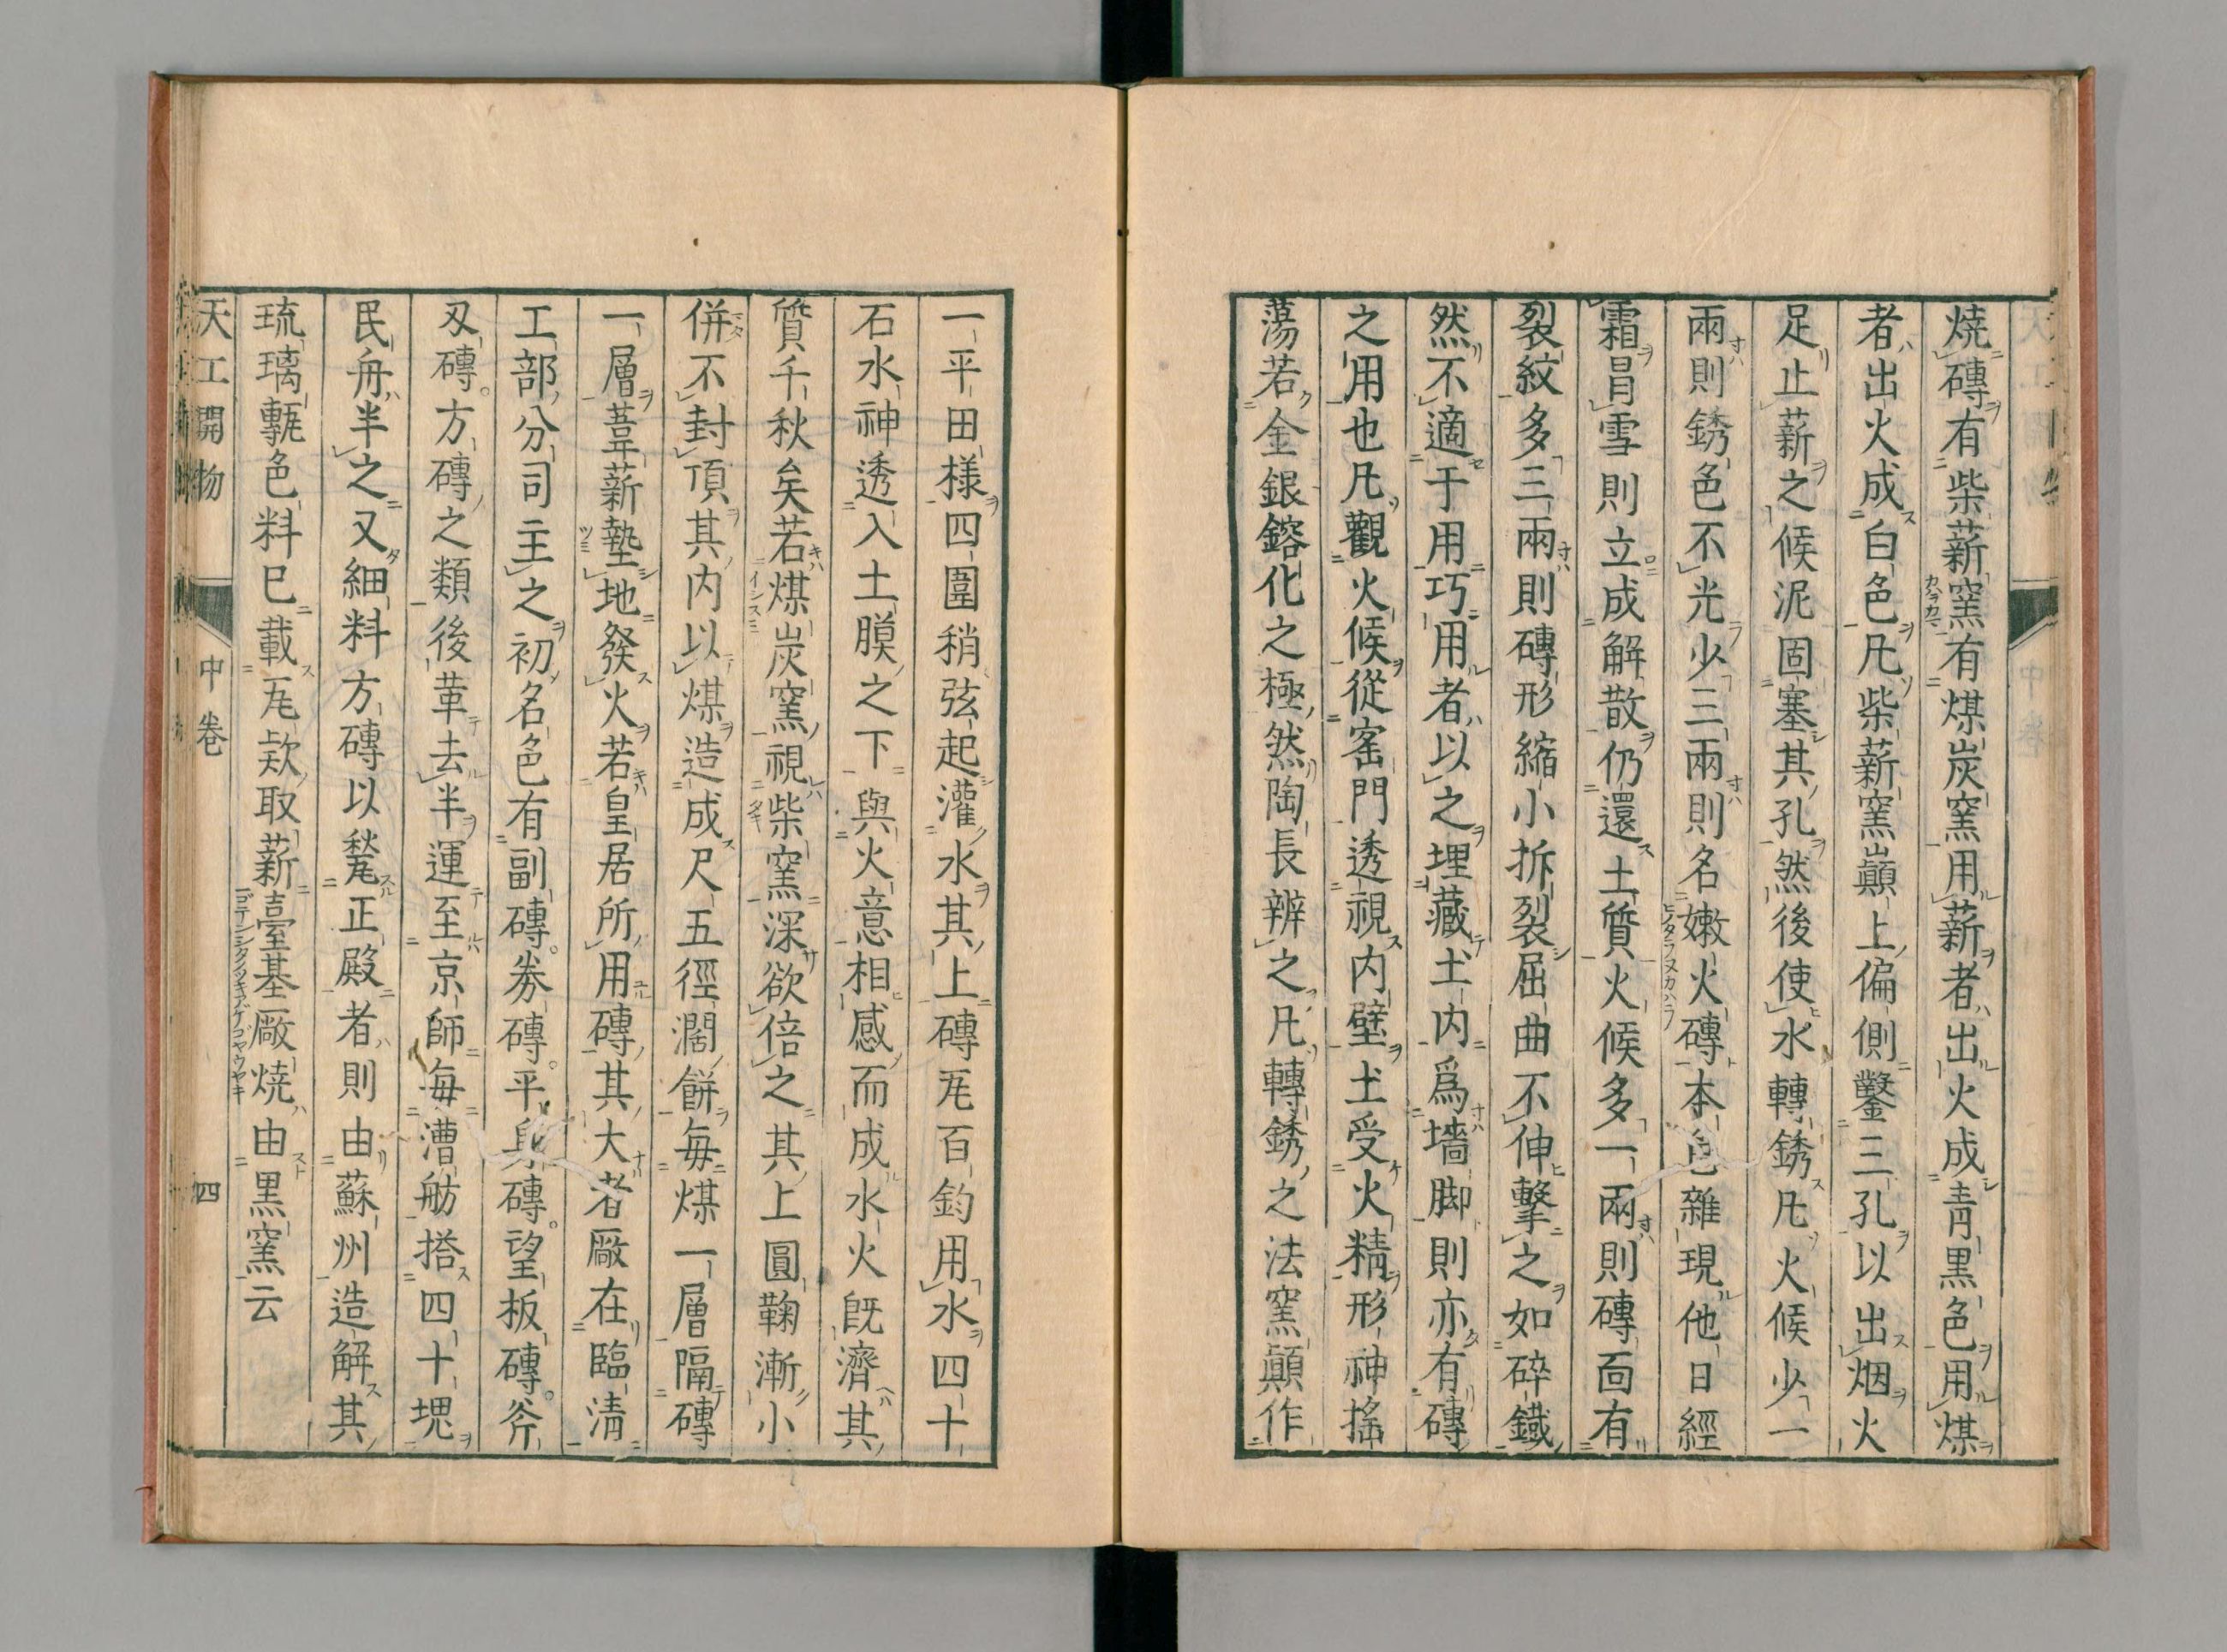 燒磚有柴薪窯有煤炭窯用薪者出火成青黒色用煤
者出火成白色凡柴薪窯巓上偏側鑿三孔以出烟火
足止薪之候泥固塞其孔然後使水轉銹凡火候少一
兩則銹色不光少三兩則名嫩火磚本色雜現他日經
霜冒雪則立成解散仍還土質火候多一兩則磚面有
裂紋多三兩則磚形縮小拆裂屈曲不伸擊之如碎鐵
然不適于用巧用者以之埋藏土内爲墻脚則亦有磚
之用也凡觀火候從窯門透視内壁土受火精形神搖
蕩若金銀鎔化之極然陶長辨之凡轉銹之法窯巓作
一平田様四圍稍弦起灌水其上磚瓦百鈞用水四十
石水神透入土膜之下與火意相感而成水火既濟其
質千秋矣若煤炭窯視柴窯深欲倍之其上圓鞠漸小
併不封頂其内以煤造成尺五徑濶餅毎煤一層隔磚
一層葦薪墊地發火若皇居所用磚其大者厰在臨清
工部分司主之初名色有副磚。券磚。平身磚。望板磚。斧
刄磚。方磚之類後革去半運至京師毎漕舫搭四十塊
民舟半之又細料方磚以甃正殿者則由蘇州造解其
琉璃甎色料已載瓦欵取薪臺基厰燒由黒窯云
天工開物 中卷 四